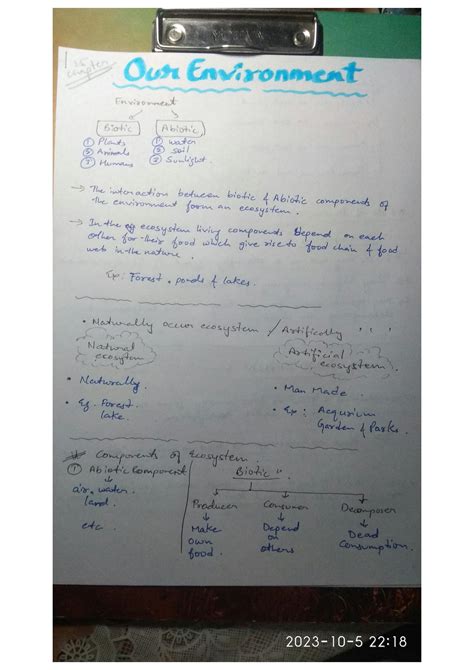 15
chapter
Our Environment
Environment
Biotic Abiotic
① Plants ① water
② Animals ② Soil
③ Humans ③ Sunlight.
→ The interaction between biotic & Abiotic components of
the environment form an ecosystem.
→ In the eg ecosystem living components Depend on each
other for their food which give rise to food chain & food
web in the nature.
Ep: Forest, ponds & lakes.
• Naturally occur ecosystem / Artifically " " "
Natural
ecosystem
Artificial
ecosystem.
• Naturally.
• Man Made.
• Eg. Forest
lake.
• Ep: Acqurium
Garden & Parks.
Components of Ecosystem.
① Abiotic Component
air, water,
land.
etc
Biotic "
Producer Consumer Decomposer
Make
own
food.
Depend
on
others
Dead
Consumption.
2023-10-5 22:18